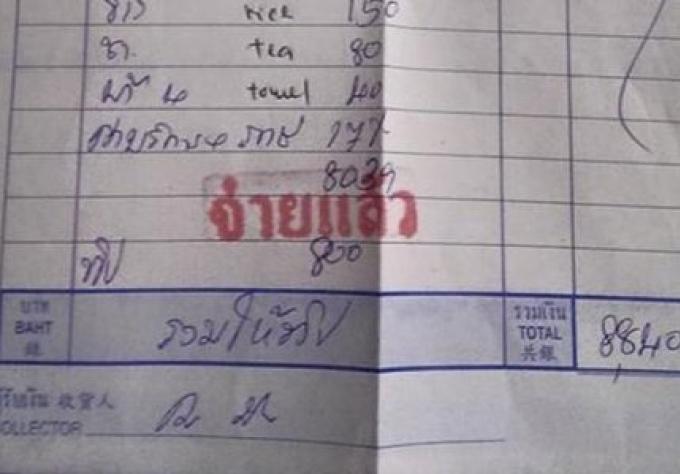 ข้าว rice 150
ชา tea 80
ผ้า 4 towel 40
177
8039
จ่ายแล้ว
ทิป 800
บาท BAHT 銖 รวมให้ทิป รวมเงิน TOTAL 共銀 8840
ผู้รับเงิน 收貨人
COLLECTOR